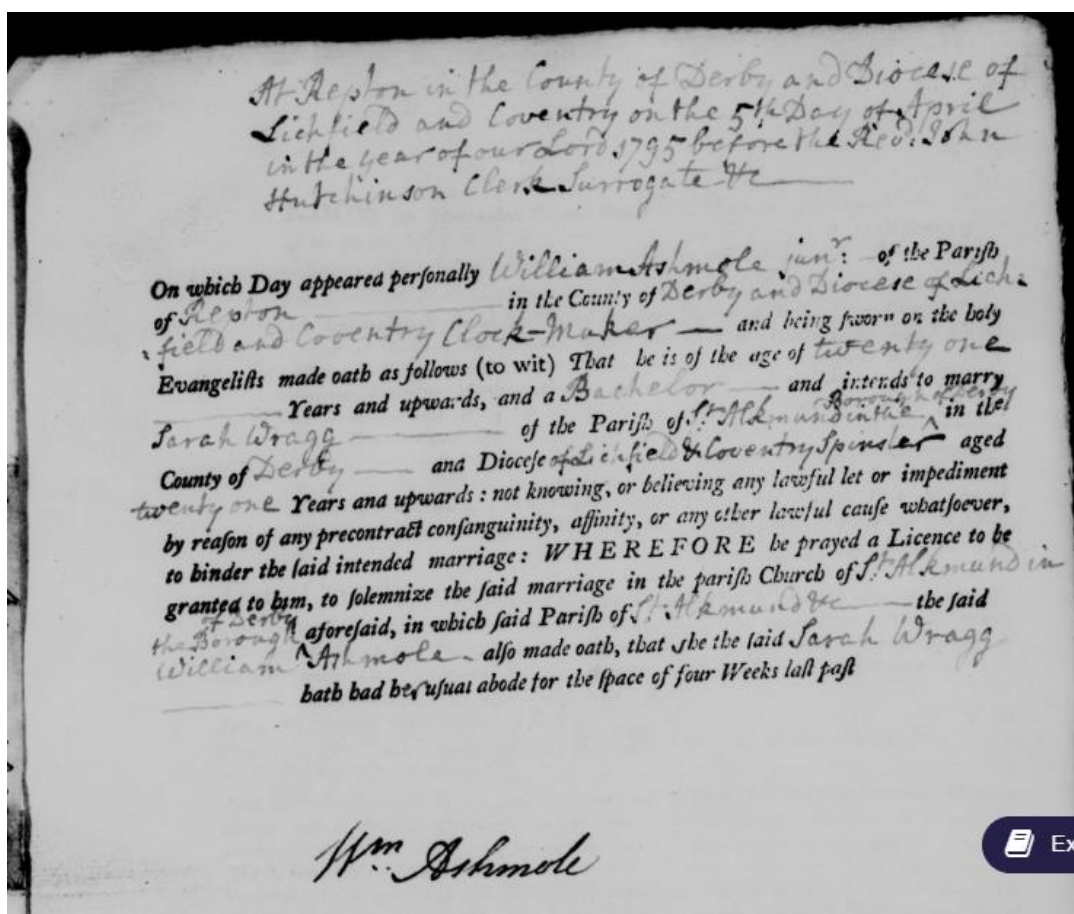 At Repton in the County of Derby and Diocese of
Lichfield and Coventry on the 5th Day of April
in the year of our Lord 1795 before the Revd. John
Hutchinson Clerk Surrogate &c
On which Day appeared perſonally William Ashmole junr. of the Pariſh
of Repton in the County of Derby and Diocese of Lich-
field and Coventry Clock-Maker and being ſworn on the holy
Evangeliſts made oath as follows (to wit) That he is of the age of twenty one
Years and upwards, and a Bachelor and intends to marry
Borough of Derby
Sarah Wragg of the Pariſh of St. Alkmund in the ^ in the
County of Derby and Dioceſe of Lichfield & Coventry Spinster aged
twenty one Years and upwards : not knowing, or believing any lawful let or impediment
by reaſon of any precontract conſanguinity, affinity, or any other lawful cauſe whatſoever,
to hinder the ſaid intended marriage : WHEREFORE he prayed a Licence to be
granted to him, to ſolemnize the ſaid marriage in the pariſh Church of St. Alkmund in
of Derby
the Borough ^ aforeſaid, in which ſaid Pariſh of St. Alkmund &c the ſaid
William Ashmole also made oath, that ſhe the ſaid Sarah Wragg
hath had her uſual abode for the ſpace of four Weeks laſt paſt
Wm. Ashmole
Ex